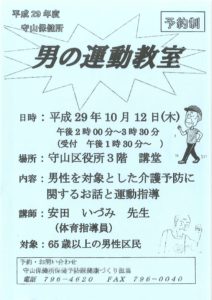 平成29年度
守山保健所
予約制
男の運動教室
日時：平成29年10月12日(木)
午後2時00分～3時30分
(受付 午後1時30分～)
場所：守山区役所3階 講堂
内容：男性を対象とした介護予防に
関するお話と運動指導
講師：安田 いづみ 先生
(体育指導員)
対象：65歳以上の男性区民
予約・お問い合わせ
守山保健所保健予防課健康づくり担当
電話 796-4620 FAX 796-0040